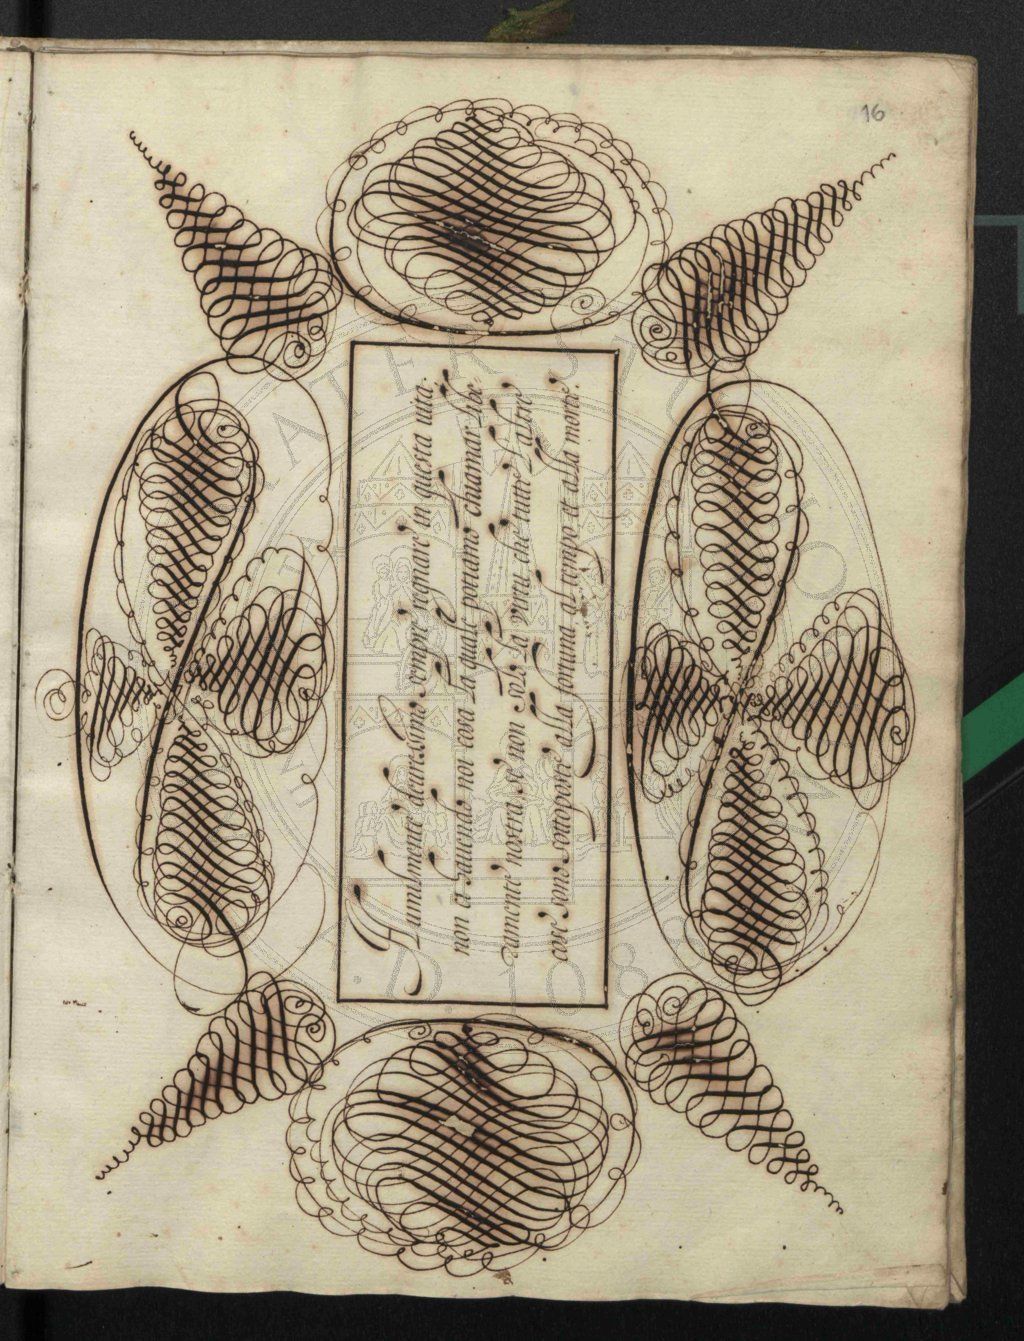 16
Humilmente dearissimo sempre regnare in questa uita.
non ci auendo noi cosa la quale possiamo chiamar libe
ramente nostra, se non solo la virtu che tutte l'altre
cose sono sottoposte alla fortuna al tempo et alla morte.